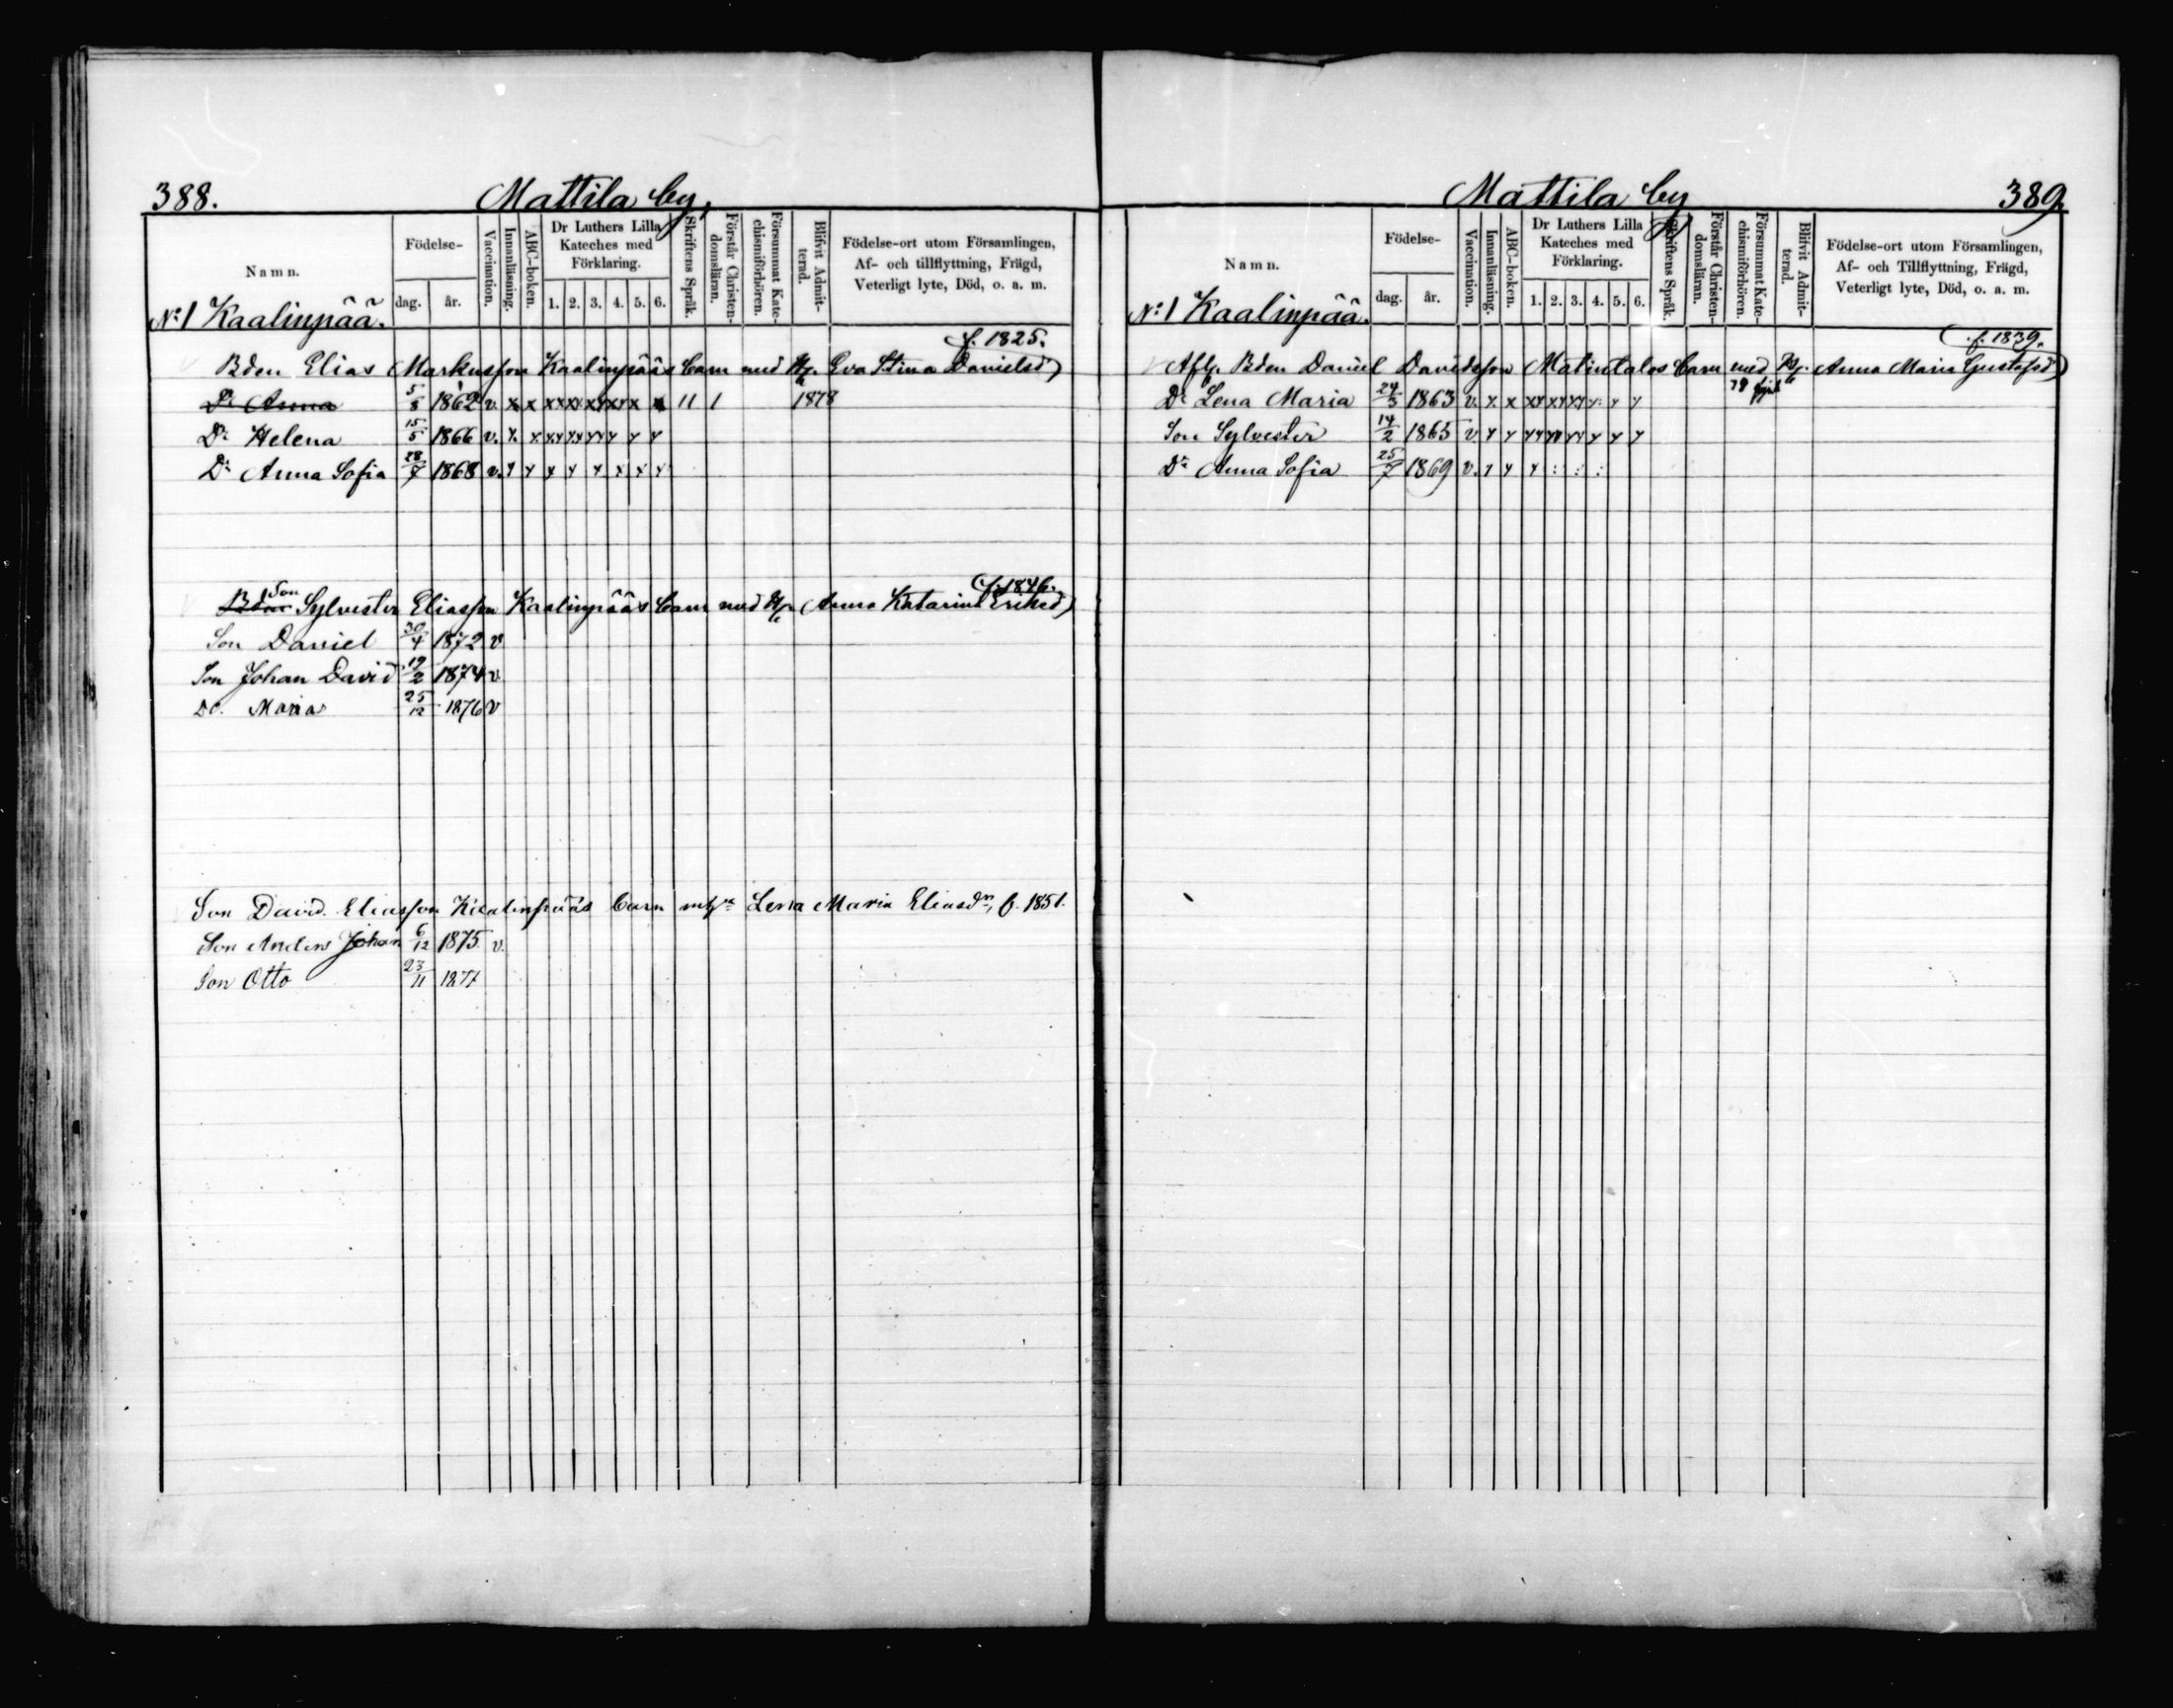 388.
Mattila by,
Namn.
Födelse-
dag.
år.
Vaccination.
Innanläsning.
ABC-boken.
Dr Luthers Lilla
Kateches med
Förklaring.
1. 2. 3. 4. 5. 6.
Skriftens Språk.
Förstår Christen-
domsläran.
Försummat Kate-
chismiförhören.
Blifvit Admit-
terad.
Födelse-ort utom Församlingen,
Af- och tillflyttning, Frägd,
Veterligt lyte, Död, o. a. m.
No 1 Kaalinpää.
f. 1825.
Bden Elias Markusson Kaalinpääs barn med Hu. Eva Stina Danielsd)
Dr Anna 5/8 1862 v. x x xx xx xx xx x x 11 1 1878
Dr Helena 15/5 1866 v. x x xx xx xx x x x
Dr Anna Sofia 28/7 1868 v. x x x x x x x x
f. 1846.
Son
Bden Sylvester Eliasson Kaalinpääs barn med Hu (Anna Katarina Eriksd)
Son Daniel 30/4 1872 v
Son Johan David 19/2 1874 v.
Do. Maria 25/12 1876 v
Son David Eliasson Kaalinpääs barn m Lena Maria Eliasdr, f. 1851.
Son Anders Johan 6/12 1875 v.
Son Otto 23/11 1877
Mattila by
389.
Namn.
Födelse-
dag.
år.
Vaccination.
Innanläsning.
ABC-boken.
Dr Luthers Lilla
Kateches med
Förklaring.
1. 2. 3. 4. 5. 6.
Skriftens Språk.
Förstår Christen-
domsläran.
Försummat Kate-
chismiförhören.
Blifvit Admit-
terad.
Födelse-ort utom Församlingen,
Af- och Tillflyttning, Frägd,
Veterligt lyte, Död, o. a. m.
No 1 Kaalinpää.
f. 1839.
Afl. Bden Daniel Davidsson Matintalos barn med Hu. Anna Maria Gustafsd)
Dr Lena Maria 24/3 1863 v. x x xx xx xx x x x
Son Sylvester 14/2 1865 v x x xx xx xx x x x
Dr Anna Sofia 25/7 1869 v. x x x : : :